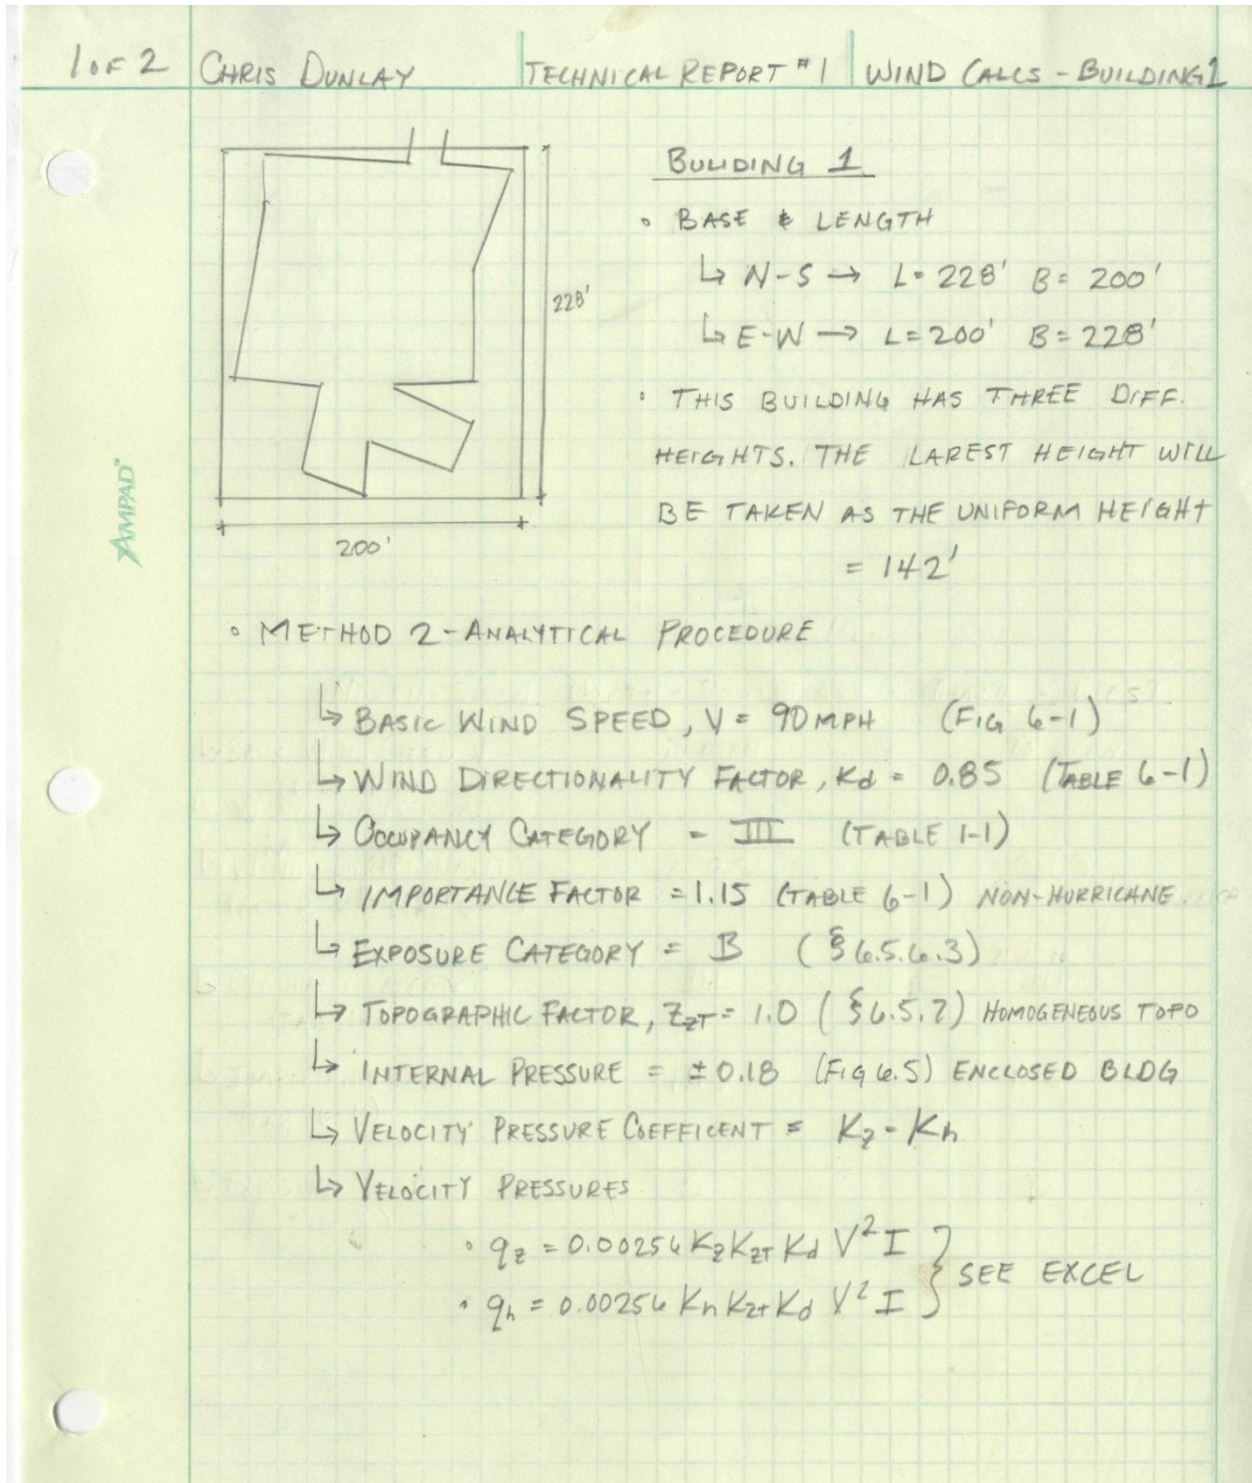 1 OF 2 CHRIS DUNLAY TECHNICAL REPORT #1 WIND CALCS - BUILDING 1
BUILDING 1
• BASE & LENGTH
↳ N-S → L= 228' B= 200'
↳ E-W → L=200' B=228'
• THIS BUILDING HAS THREE DIFF.
HEIGHTS. THE LAREST HEIGHT WILL
BE TAKEN AS THE UNIFORM HEIGHT
= 142'
228'
200'
AMPAD™
• METHOD 2 - ANALYTICAL PROCEDURE
↳ BASIC WIND SPEED, V = 90 MPH (FIG 6-1)
↳ WIND DIRECTIONALITY FACTOR, Kd = 0.85 (TABLE 6-1)
↳ OCCUPANCY CATEGORY - III (TABLE 1-1)
↳ IMPORTANCE FACTOR = 1.15 (TABLE 6-1) NON-HURRICANE
↳ EXPOSURE CATEGORY = B (§ 6.5.6.3)
↳ TOPOGRAPHIC FACTOR, ZZT = 1.0 (§6.5.7) HOMOGENEOUS TOPO
↳ INTERNAL PRESSURE = ±0.18 (FIG 6.5) ENCLOSED BLDG
↳ VELOCITY PRESSURE COEFFICENT = Kz - Kh
↳ VELOCITY PRESSURES
• qz = 0.00256 Kz KZT Kd V² I
• qh = 0.00256 Kh Kzt Kd V² I
} SEE EXCEL